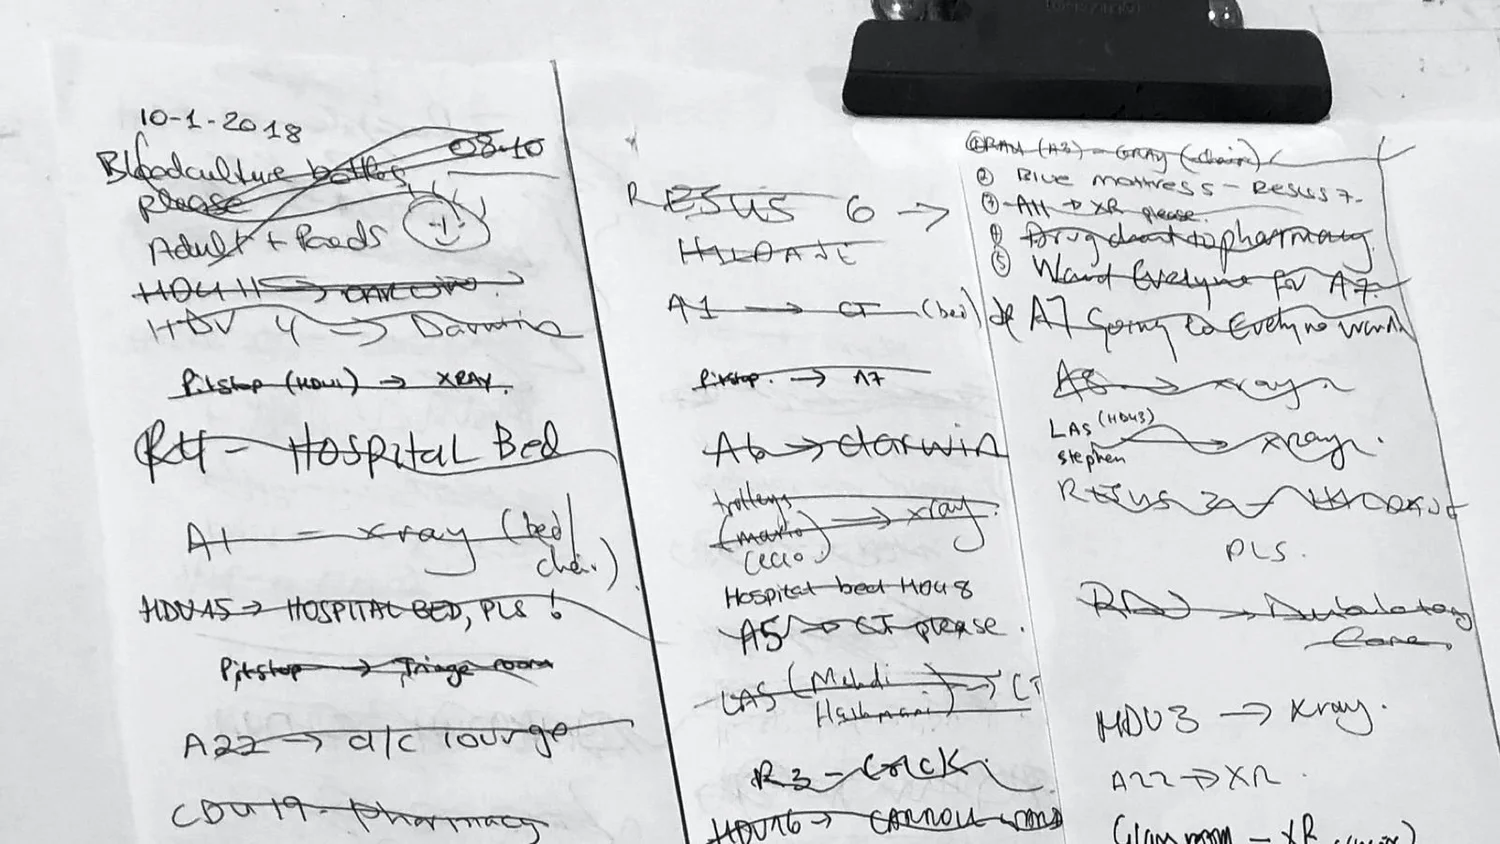 10-1-2018
08:10
Bloodculture bottles
please
Adult + Paeds
HDU 11 →
HDU 4 → Darwin
Pitstop (HDU1) → XRAY.
R4 - Hospital Bed
A1 - xray (bed/
chair)
HDU15 → HOSPITAL BED, PLS !
Pitstop → Triage room
A22 → d/c lounge
CDU 19 - pharmacy
RESUS 6 →
A1 → CT (bed)
Pitstop. → A7
A6 → darwin
trolleys
(mario) → xray.
Hospital bed HDU 8
A5 → CT please.
LAS (Mehdi
) → CT
R3 -
HDU16 → CARROLL WARD
① (A3) - XRAY (chair)
② Blue mattress - Resus 7.
A11 → XR please.
④ Drug chart to pharmacy.
⑤ Ward Evelyne for A7.
* A7 Going to Evelyne ward
A8 → xray.
LAS (HDU3)
Stephen → xray.
Resus
PLS.
→ Ambulatory
Care.
HDU3 → Xray.
A22 → XR.
- XR